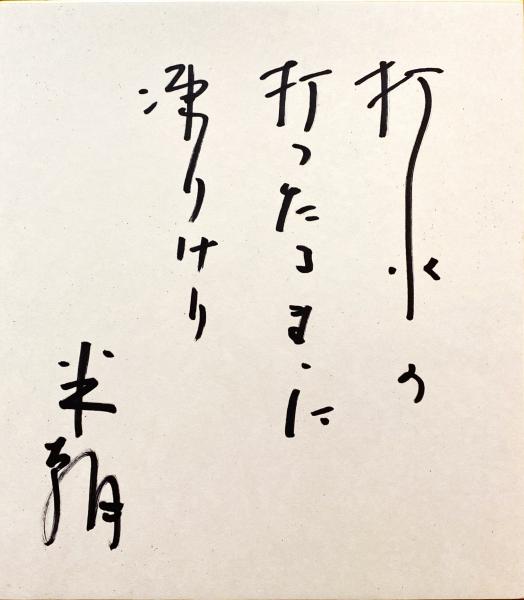 打水の
打ったるまゝに
凍りけり
米朝